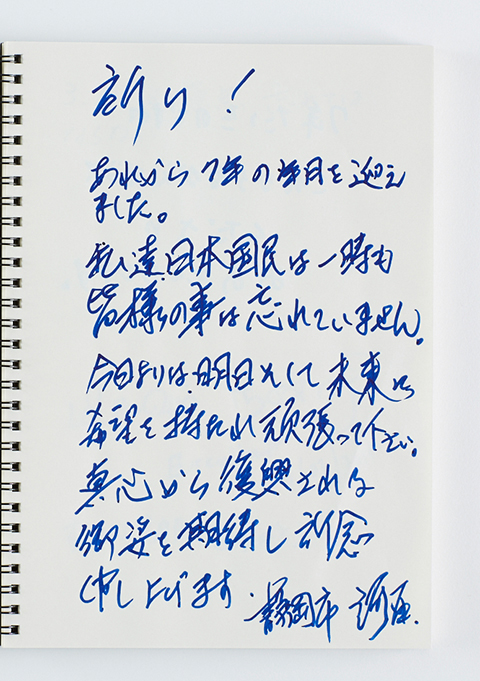 祈り!
あれから7年の年月を迎え
ました。
私達日本国民は一時も
皆様の事は忘れていません。
今日よりは明日そして未来に
希望を持たれ頑張って下さい。
真心から復興される
御姿を期待し祈念
申し上げます.
静岡市 河原.